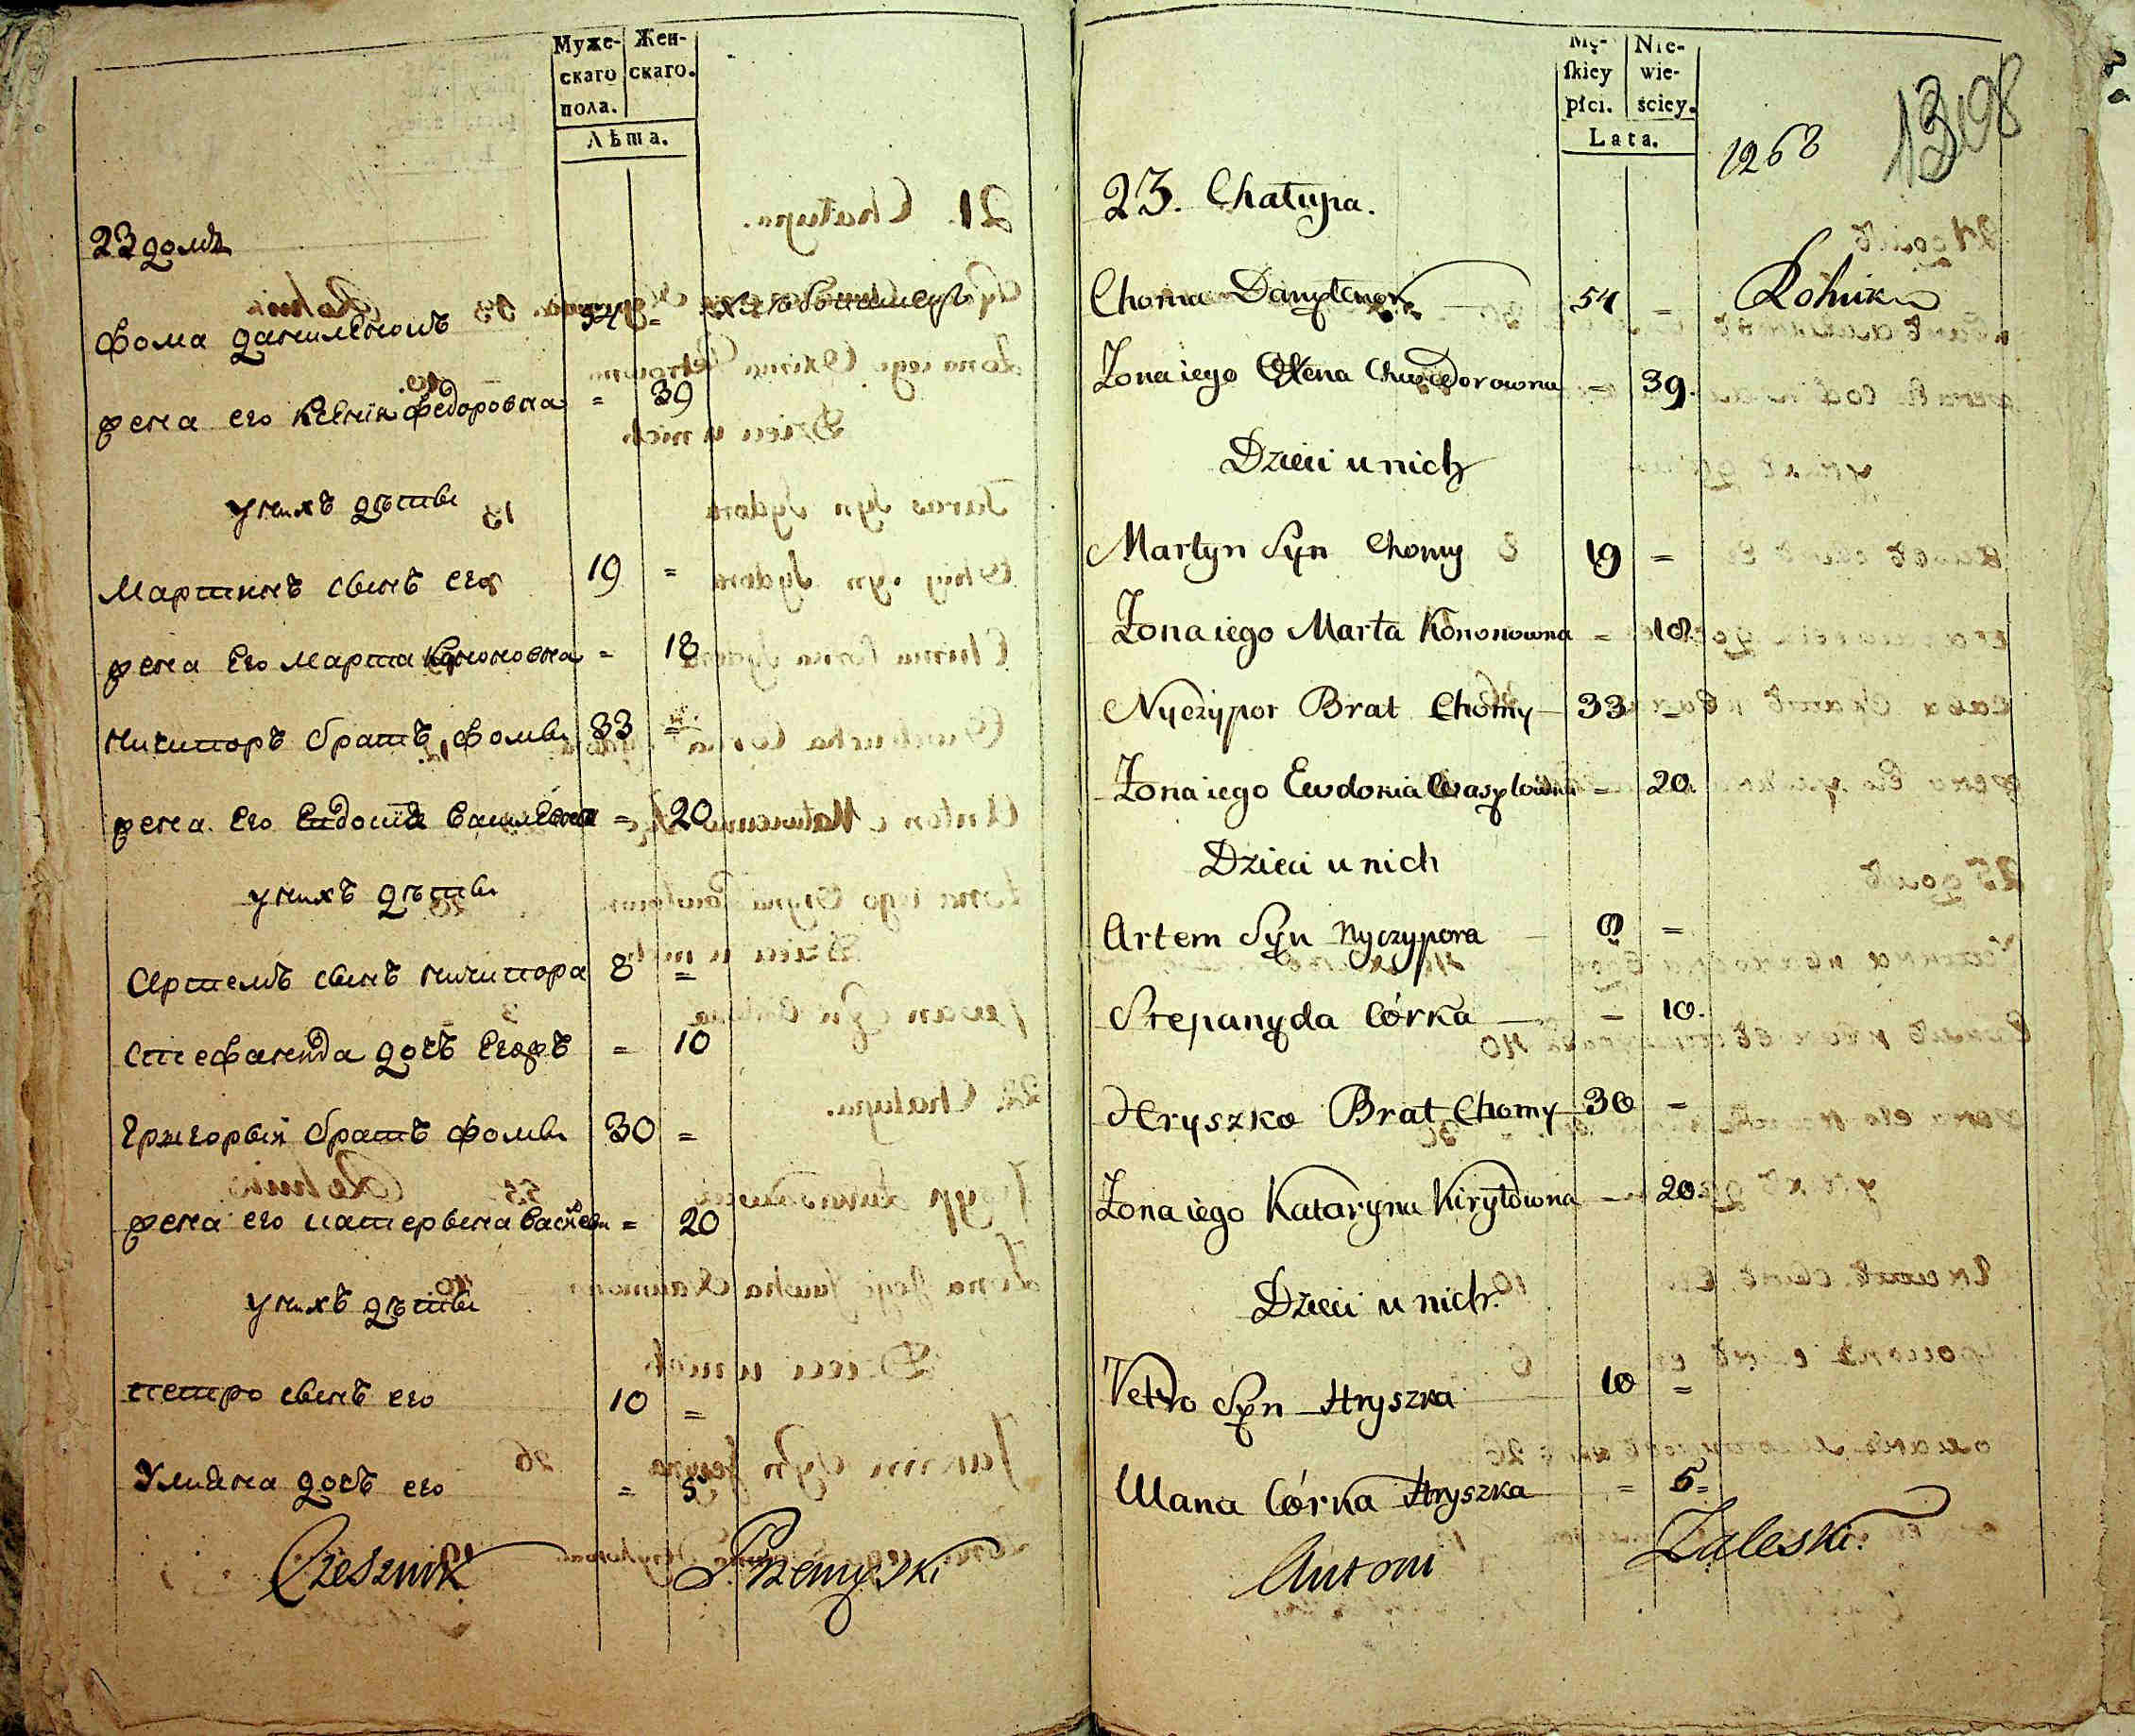 Муже- Жен-
скаго скаго.
пола.
Лѣта.
23 домъ
Фома Даниленокъ 54 = хлѣбопашецъ
жена его Ксенія Федоровна = 39
у нихъ дѣты
Мартинъ сынъ его 19 =
жена его Марта Кононовна = 18
Ничипоръ братъ Фомы 33 =
жена его Евдокія Васильевна = 20
у нихъ дѣты
Артемъ сынъ Ничипора 8 =
Стефанида дочь егожъ = 10
Григорый братъ Фомы 30 =
жена его Катерына = 20
у нихъ дѣты
Петро сынъ его 10 =
Улияна дочь его = 5
Cześznik Przemyski
Mę- Nie-
skiey wie-
płci. ściey.
Lata.
1268
1398
23. Chałupa.
Choma Danylenok 54 = Rólnik
Żona iego Chwedorowna = 39.
Dzieci u nich
Martyn Syn Chomy 19 =
Żona iego Marta Kononowna = 18.
Nyczypor Brat Chomy 33 =
Żona iego Ewdokia Wasylówna = 20.
Dzieci u nich
Artem Syn Nyczypora 8 =
Stepanyda Córka = 10.
Hryszko Brat Chomy 30 =
Żona iego Kataryna Kiryłowna = 20.
Dzieci u nich.
Petro Syn Hryszka 10 =
Ulana Córka Hryszka = 5=
Antoni Zaleski.